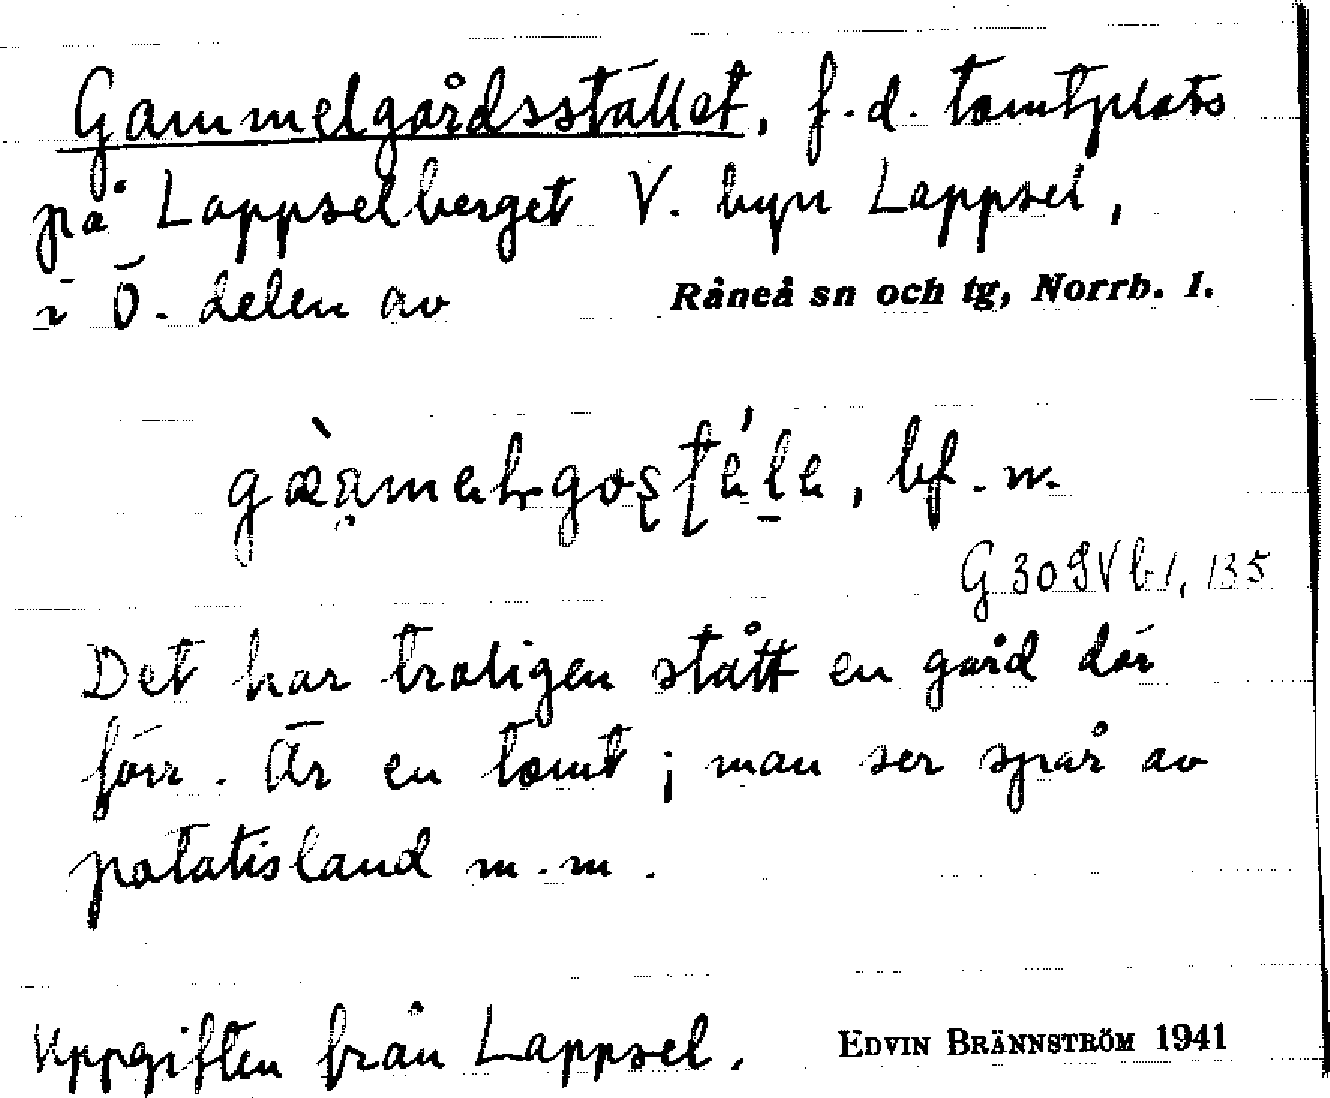 Gammelgårdsstället, f.d. tomtplats
på Lappselberget V. byn Lappsel,
i Ö. delen av Råneå sn och tg, Norrb. l.
bf. n.
G 309 V b1, 135
Det har troligen stått en gård där
förr. Är en tomt; man ser spår av
potatisland m.m.
Uppgiften från Lappsel. EDVIN BRÄNNSTRÖM 1941